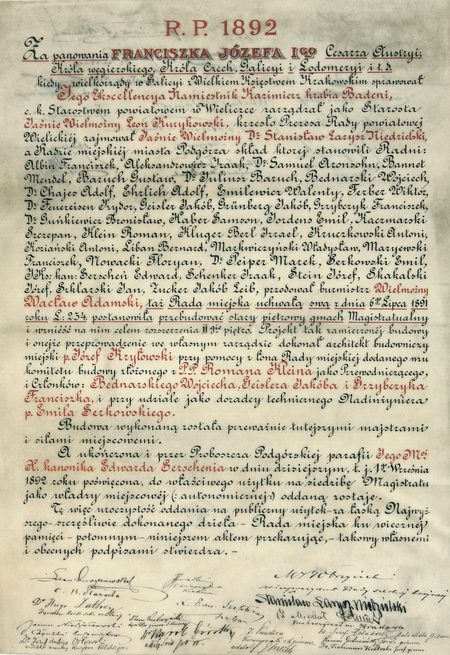 R. P. 1892
Za panowania FRANCISZKA JÓZEFA Igo Cesarza Austryi,
Króla węgierskiego, Króla Czech, Galicyi i Lodomeryi i t. d.
kiedy wielkorządy w Galicyi z Wielkiem Księstwem Krakowskim sprawował
Jego Ekscellencya Namiestnik Kazimierz hrabia Badeni,
c. k. Starostwem powiatowem w Wieliczce zarządzał jako Starosta
Jaśnie Wielmożny Leon Kurykowski, krzesło Prezesa Rady powiatowej
Wielickiej zajmował Jaśnie Wielmożny Dr. Stanisław Larysz Niedzielski,
a Radzie miejskiej miasta Podgórza skład której stanowili Radni:
Albin Franciszek, Aleksandrowicz Izaak, Dr. Samuel Aronsohn, Bannet
Mendel, Baruch Gustaw, Dr. Juliusz Baruch, Bednarski Wojciech,
Dr. Chajes Adolf, Ehrlich Adolf, Emilewicz Walenty, Ferber Wiktor,
Dr. Feuereisen Izydor, Geisler Jakób, Grünberg Jakób, Grzybczyk Franciszek,
Dr. Guńkiewicz Bronisław, Haber Samson, Jordens Emil, Kaczmarski
Szczepan, Klein Roman, Kluger Berl Izrael, Kruczkowski Antoni,
Koziański Antoni, Liban Bernard, Markwiczyński Władysław, Maryewski
Franciszek, Nowacki Floryan, Dr. Peiper Marek, Serkowski Emil,
JKs: kan: Serscheń Edward, Schenker Izaak, Stein Józef, Skakalski
Józef, Szklarski Jan, Zucker Jakób Leib, przodował burmistrz Wielmożny
Wacław Adamski, taż Rada miejska uchwałą swą z dnia 6go Lipca 1891
roku L: 234 postanowiła przebudować stary piętrowy gmach Magistratualny
i wznieść na nim celem rozszerzenia IIgie piętro. Projekt tak zamierzonej budowy
i onejże przeprowadzenie we własnym zarządzie dokonał architekt budowniczy
miejski p. Józef Kryłowski przy pomocy z łona Rady miejskiej dodanego mu
komitetu budowy złożonego z P.P. Romana Kleina jako Przewodniczącego,
i Członków: Bednarskiego Wojciecha, Geislera Jakóba i Grzybczyka
Franciszka, i przy udziale jako doradcy technicznego Nadinżyniera
p. Emila Serkowskiego.
Budowa wykonaną została przeważnie tutejszymi majstrami
i siłami miejscowemi.
A ukończona i przez Proboszcza Podgórskiej parafii Jego Mci
X. kanonika Edwarda Serschenia w dniu dzisiejszym, t. j. 1go Września
1892 roku poświęcona, do właściwego użytku na siedzibę Magistratu
jako władzy miejscowej (: autonomicznej :) oddaną zostaje.
Tę więc uroczystość oddania na publiczny użytek za łaską Najwyż-
szego szczęśliwie dokonanego dzieła - Rada miejska ku wiecznej
pamięci potomnym niniejszem aktem przekazując, takowy własnemi
i obecnych podpisami stwierdza.